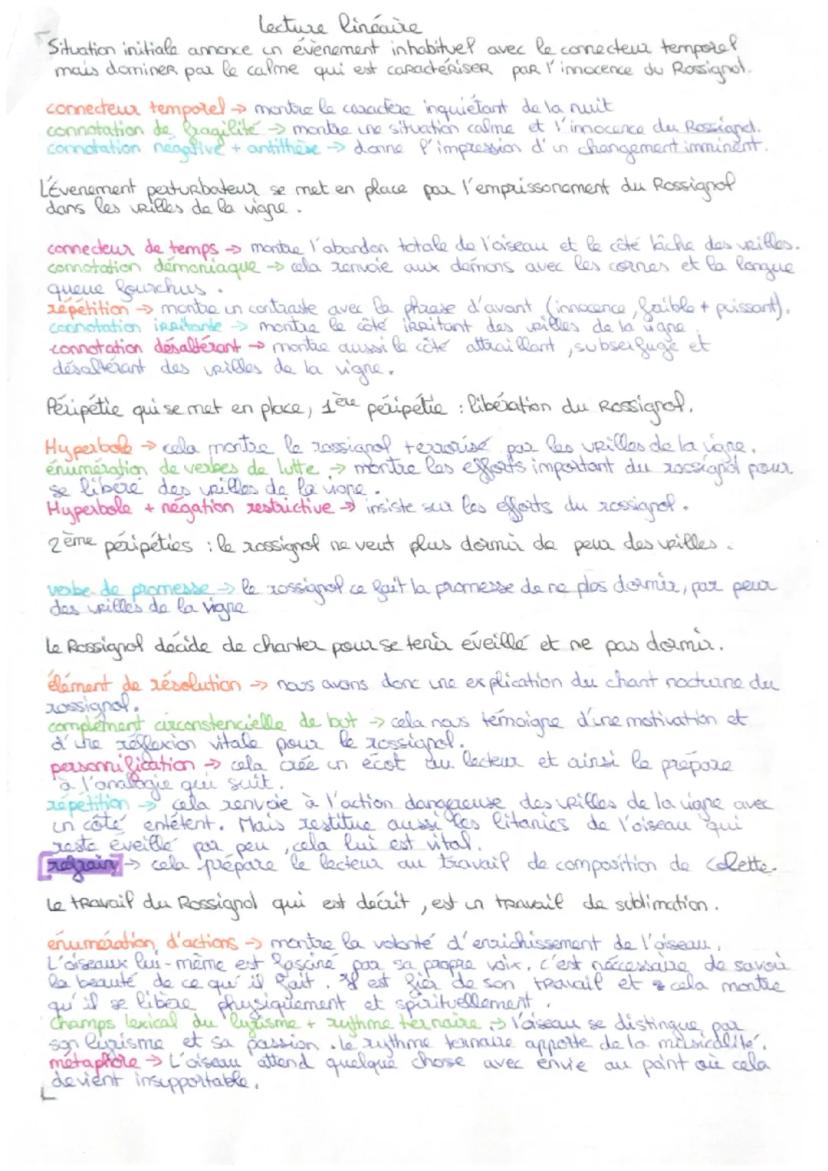 Lecture linéaire
Situation initiale annonce un évènement inhabituel avec le connecteur temporel
mais dominer par le calme qui est caractériser par l'innocence du Rossignol.
connecteur temporel → montre le caractère inquiétant de la nuit
connotation de fragilité → montre une situation calme et l'innocence du Rossignol.
connotation négative + antithèse → donne l'impression d'un changement imminent.
L'Évenement perturbateur se met en place par l'emprissonement du Rossignol
dans les vrilles de la vigne.
connecteur de temps → montre l'abandon totale de l'oiseau et le côté lâche des vrilles.
connotation démoniaque → cela renvoie aux démons avec les cornes et la longue
queue fourchus.
répétition → montre un contraste avec la phrase d'avant (innocence, faible + puissant).
connotation irritante → montre le côté irritant des vrilles de la vigne.
connotation désaltérant → montre aussi le côté attraillant, subserfuge et
désaltérant des vrilles de la vigne.
Péripétie qui se met en place, 1ère péripétie : libération du Rossignol.
Hyperbole → cela montre le rossignol terrorisé par les vrilles de la vigne.
énumération de verbes de lutte → montre les efforts important du rossignol pour
se libéré des vrilles de la vigne.
Hyperbole + négation restrictive → insiste sur les efforts du rossignol.
2ème péripéties : le rossignol ne veut plus dormir de peur des vrilles.
verbe de promesse → le rossignol ce fait la promesse de ne plos dormir, par peur
des vrilles de la vigne
Le Rossignol décide de chanter pour se tenir éveillé et ne pas dormir.
élément de résolution → nous avons donc une explication du chant nocturne du
rossignol.
complément circonstencielle de but → cela nous témoigne d'une motivation et
d'une réflexion vitale pour le rossignol.
personnification → cela crée un écot du lecteur et ainsi le prépare
à l'analogie qui suit.
répétition → cela renvoie à l'action dangereuse des vrilles de la vigne avec
un côté entêtent. Mais restitue aussi les litanies de l'oiseau qui
reste éveillé par peu, cela lui est vital.
refrain → cela prépare le lecteur au travail de composition de Colette.
Le travail du Rossignol qui est décrit, est un travail de sublimation.
énumération d'actions → montre la volonté d'enrichissement de l'oiseau.
L'oiseaux lui-même est fasciné par sa propre voix, c'est nécessaire de savoir
la beauté de ce qu'il fait. Il est fier de son travail et cela montre
qu'il se libère physiquement et spirituellement.
champs lexical du lyrisme + rythme ternaire → l'oiseau se distingue par
son lyrisme et sa passion. le rythme ternaire apporte de la musicalité.
métaphore → L'oiseau attend quelque chose avec envie au point où cela
devient insupportable.